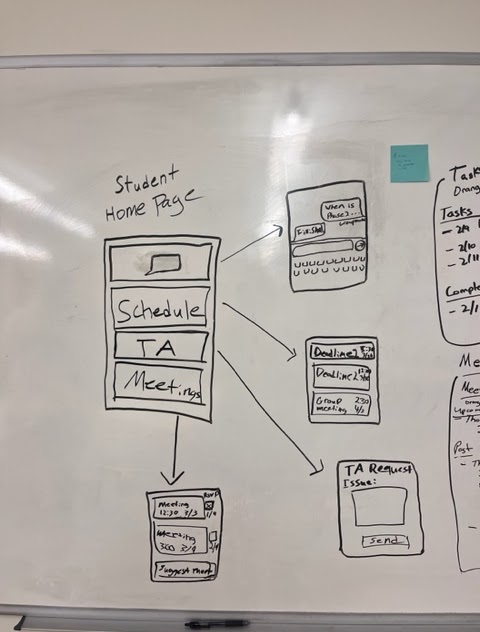 Student
Home Page
Schedule
TA
Meetings
When is
Phase 2...
Finished
Deadline 1
Deadline 2
Group
meeting
2:30
4/3
TA Request
Issue:
Send
RSVP
Meeting
12:30 3/3
Meeting
3:00 3/9
Suggest
Task
Tasks
- 2/9
- 2/10
- 2/11
Comple
- 2/1
Me
Mee
Upcom
Past